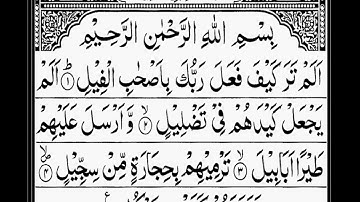 بِسْمِ اللهِ الرَّحْمٰنِ الرَّحِيْمِ
اَلَمْ تَرَ كَيْفَ فَعَلَ رَبُّكَ بِاَصْحٰبِ الْفِيْلِ ۝١ اَلَمْ
يَجْعَلْ كَيْدَهُمْ فِيْ تَضْلِيْلٍ ۙ۝٢ وَّاَرْسَلَ عَلَيْهِمْ
طَيْرًا اَبَابِيْلَ ۙ۝٣ تَرْمِيْهِمْ بِحِجَارَةٍ مِّنْ سِجِّيْلٍ ۙ۝٤